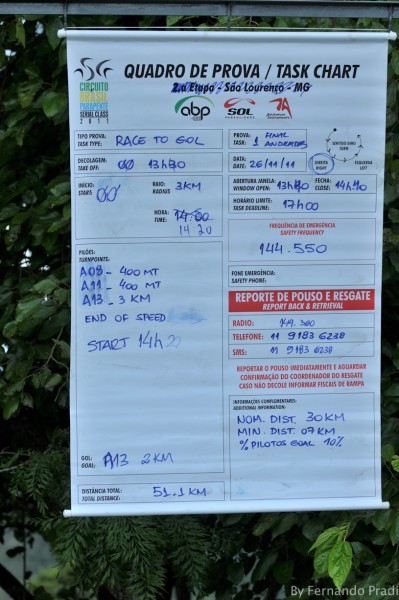 CIRCUITO
BRASIL
PARAPENTE
SERIAL CLASS
2011
QUADRO DE PROVA / TASK CHART
2.a Etapa - São Lourenço - MG
abp
SOL
PARAGLIDERS
TIPO PROVA:
TASK TYPE:
RACE TO GOL
PROVA:
TASK:
1 FINAL
1 ANDRADAS
SENTIDO GIRO
TURN
DIREITA
RIGHT
ESQUERDA
LEFT
DECOLAGEM:
TAKE OFF:
00 13h40
DATA:
DATE:
26/11/11
INÍCIO:
START:
00
RAIO:
RADIUS
3KM
HORA:
TIME:
14:00
14 20
ABERTURA JANELA:
WINDOW OPEN:
13h40
FECHA:
CLOSE:
14h10
HORÁRIO LIMITE:
TASK DEADLINE:
17h00
FREQUÊNCIA DE EMERGÊNCIA
SAFETY FREQUENCY
144.550
PILÕES:
TURNPOINTS:
A08 - 400 MT
A11 - 400 MT
A13 - 3 KM
END OF SPEED
START 14h20
FONE EMERGÊNCIA:
SAFETY PHONE:
REPORTE DE POUSO E RESGATE
REPORT BACK & RETRIEVAL
RADIO:
TELEFONE: 11 9183 6238
SMS: 11 9183 6238
REPORTAR O POUSO IMEDIATAMENTE E AGUARDAR
CONFIRMAÇÃO DO COORDENADOR DO RESGATE
CASO NÃO DECOLE INFORMAR FISCAIS DE RAMPA
INFORMAÇÕES COMPLEMENTARES:
ADDITIONAL INFORMATION:
NOM. DIST. 30KM
MIN. DIST. 07KM
% PILOTOS GOAL 10%
GOL:
GOAL:
A13 2KM
DISTÂNCIA TOTAL:
TOTAL DISTANCE:
51.1KM
By Fernando Pradi